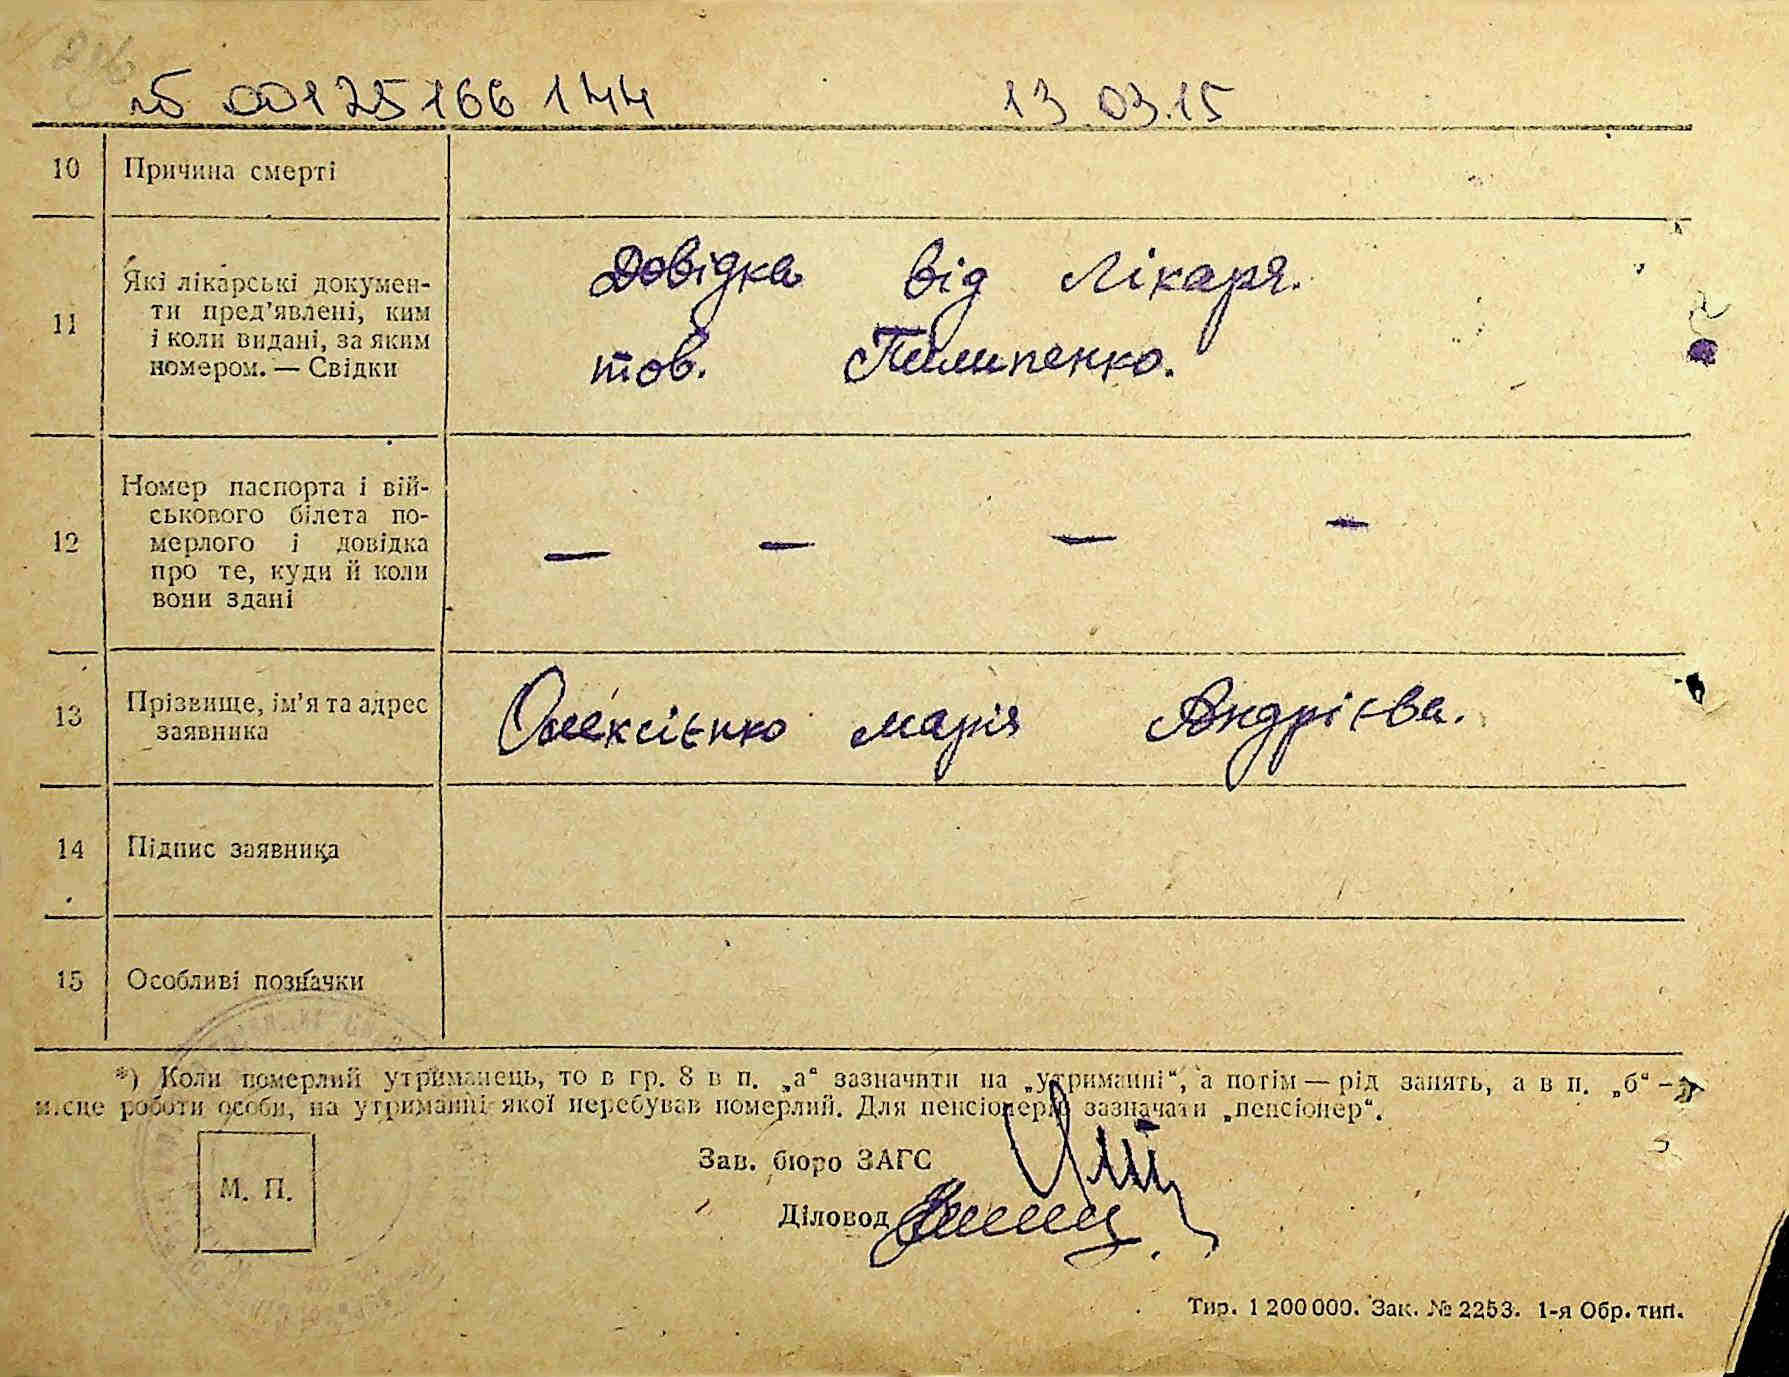 00125166144 13.03.15
10 Причина смерті
11 Які лікарські докумен-
ти пред'явлені, ким
і коли видані, за яким
номером. — Свідки
Довідка від лікаря.
тов. Пилипенко.
12 Номер паспорта і вій-
ськового білета по-
мерлого і довідка
про те, куди й коли
вони здані
— — — —
13 Прізвище, ім'я та адрес
заявника
Олексієнко марія Андрієва.
14 Підпис заявника
15 Особливі позначки
*) Коли померлий утриманець, то в гр. 8 в п. „а“ зазначити на „утриманні“, а потім — рід занять, а в п. „б“ —
місце роботи особи, на утриманні якої перебував померлий. Для пенсіонерів зазначати „пенсіонер“.
Зав. бюро ЗАГС
М. П.
Діловод
Тир. 1 200 000. Зак. № 2253. 1-я Обр. тип.